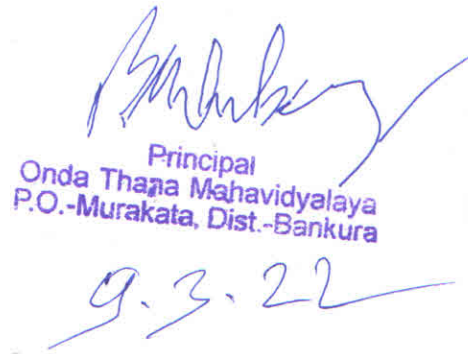 Principal
Onda Thana Mahavidyalaya
P.O.-Murakata, Dist.-Bankura
9.3.22